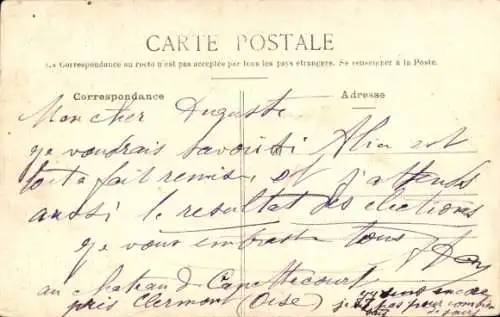 CARTE POSTALE
La Correspondance au recto n'est pas acceptée par tous les pays étrangers. Se renseigner à la Poste.
Correspondance
Adresse
Mon cher Auguste
je voudrais savoir si Alice est
tout a fait remise, et j'attends
aussi le resultat des elections
je vous embrasse tous
au chateau de
près Clermont (Oise)
j'y suis encore
pas pour combien
de jours